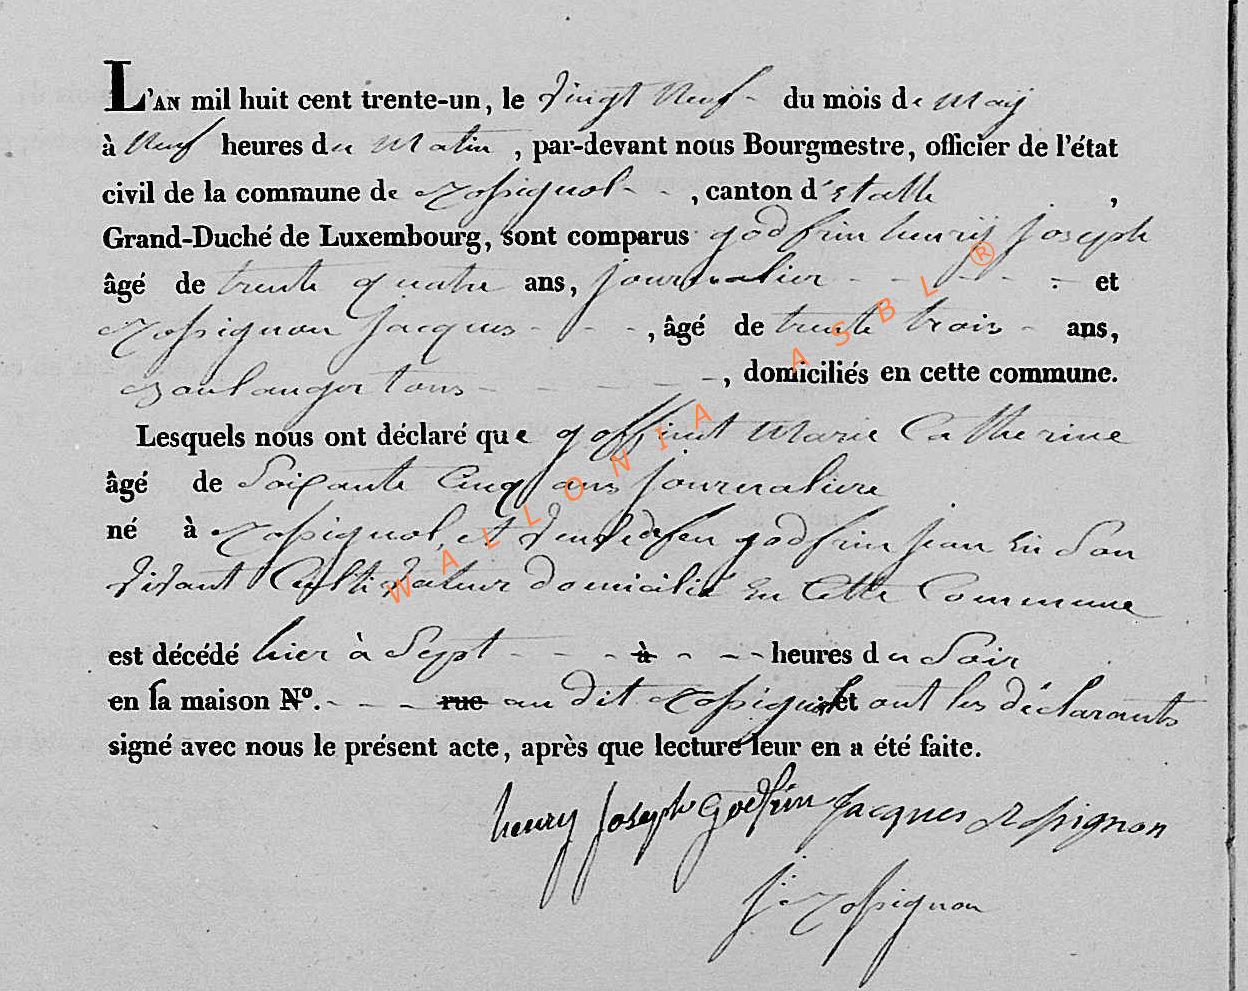 L'AN mil huit cent trente-un, le vingt Neuf - du mois de Maij
à Neuf heures du Matin, par-devant nous Bourgmestre, officier de l'état
civil de la commune de Rossignol - -, canton d'Etalle,
Grand-Duché de Luxembourg, sont comparus godfrin henrij Joseph
âgé de trente quatre ans, journalier - - - - - et
Rossignon Jacques - - -, âgé de trente trois - ans,
Boulanger tous - - - - - -, domiciliés en cette commune.
Lesquels nous ont déclaré que goffinet Marie Catherine
âgé de Soixante Cinq ans journaliere
né à Rossignol, et veuve de feu godfrin jean en Son
vivant Cultivateur domicilié en Cette Commune
est décédé hier à Sept - - - à - - - heures du Soir
en sa maison N°. - - - rue au dit Rossignol et ont les déclarants
signé avec nous le présent acte, après que lecture leur en a été faite.
henry joseph Godfrin Jacques Rossignon
J: Rossignon
WALLONIA ASBL ®